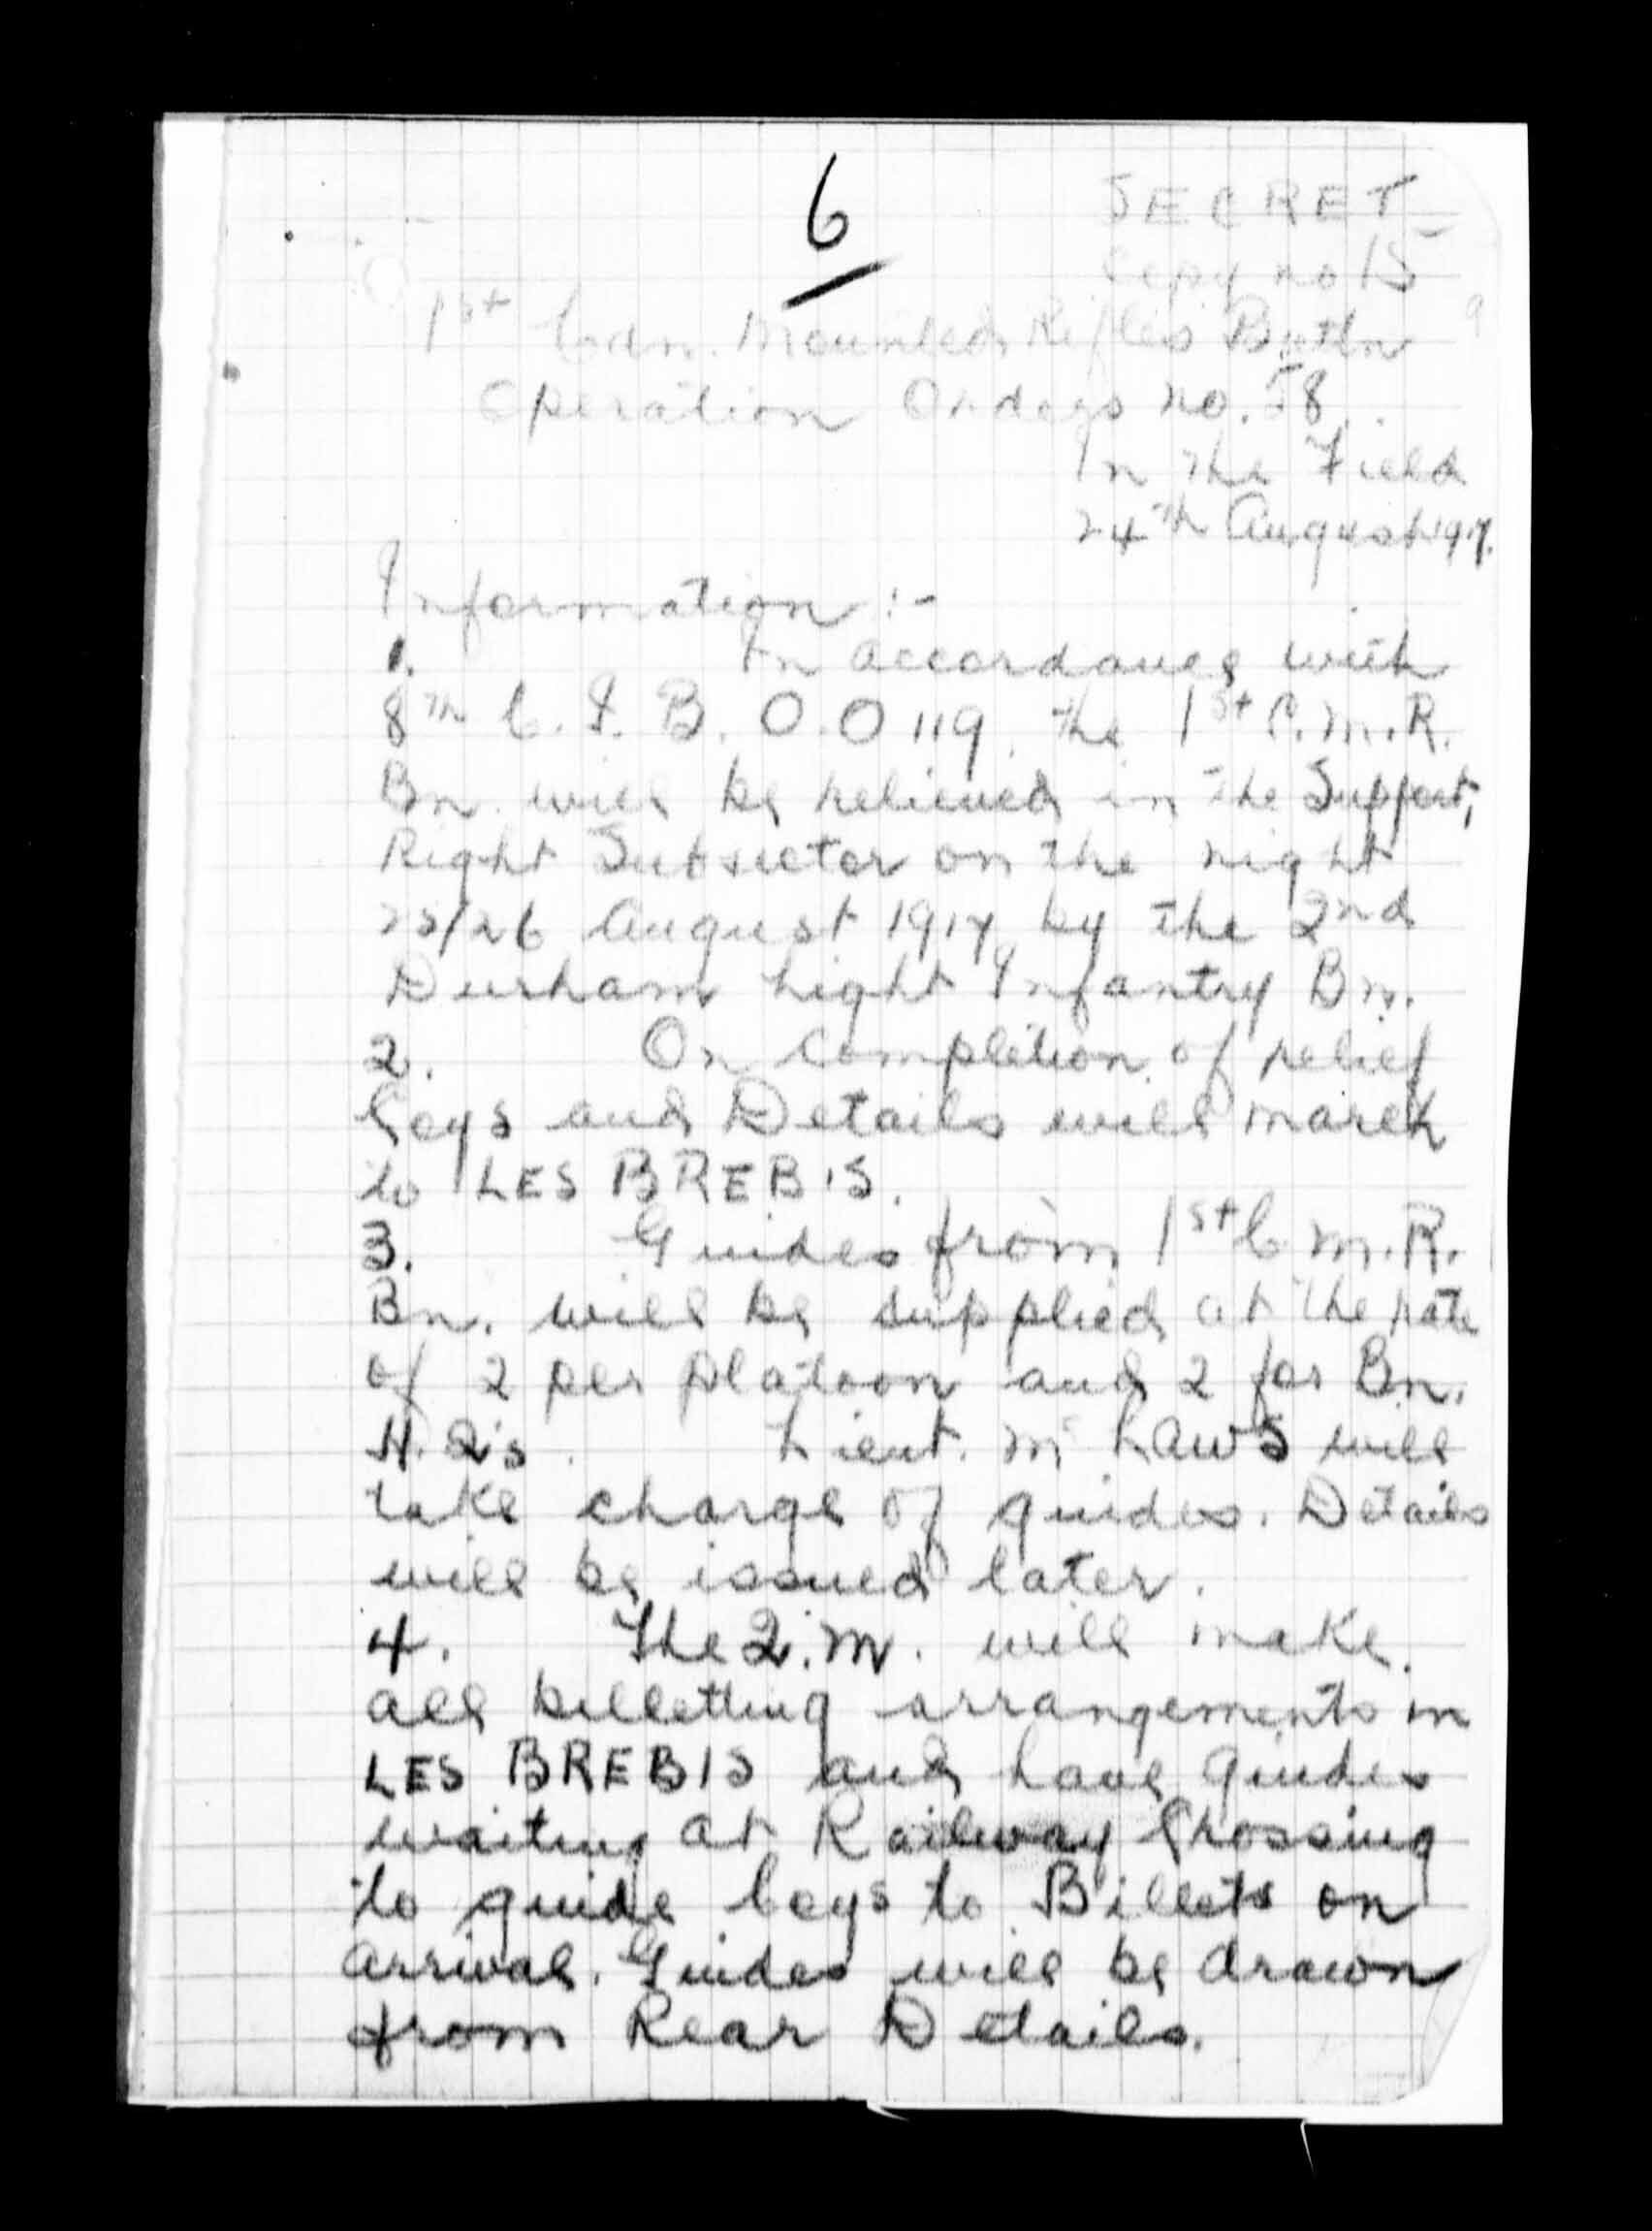 6
SECRET
Copy no 15
1st Cdn. Mounted Rifles Battn
Operation Orders no. 58.
In the Field
24th August 1917.
Information :-
1. In accordance with
8th C. I. B. O.O 119. the 1st C.M.R.
Bn. will be relieved in the Support,
Right Subsector on the night
25/26 August 1917 by the 2nd
Durham Light Infantry Bn.
2. On Completion of relief
Coys and Details will march
to LES BREBIS.
3. Guides from 1st C.M.R.
Bn. will be supplied at the rate
of 2 per platoon and 2 for Bn.
H.Q's. Lieut. M Laws will
take charge of guides. Details
will be issued later.
4. The Q.M. will make
all billetting arrangements in
LES BREBIS and have guides
waiting at Railway Crossing
to guide Coys to Billets on
arrival. Guides will be drawn
from Rear Details.